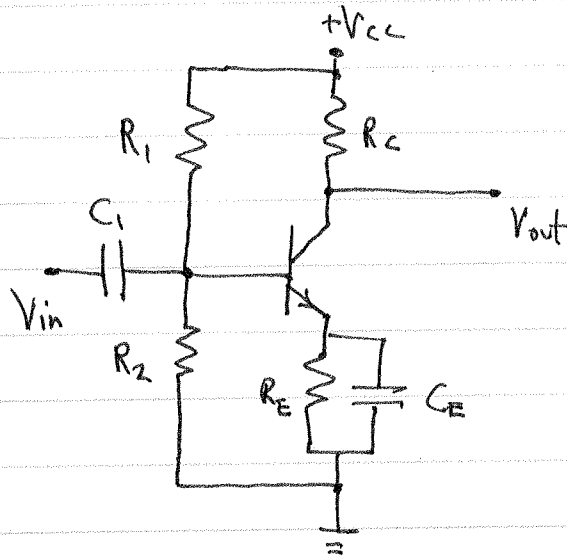 +Vcc
R1
Rc
C1
Vout
Vin
R2
RE
CE